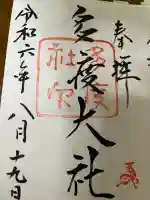 奉拝
多度大社
令和六年八月十九日